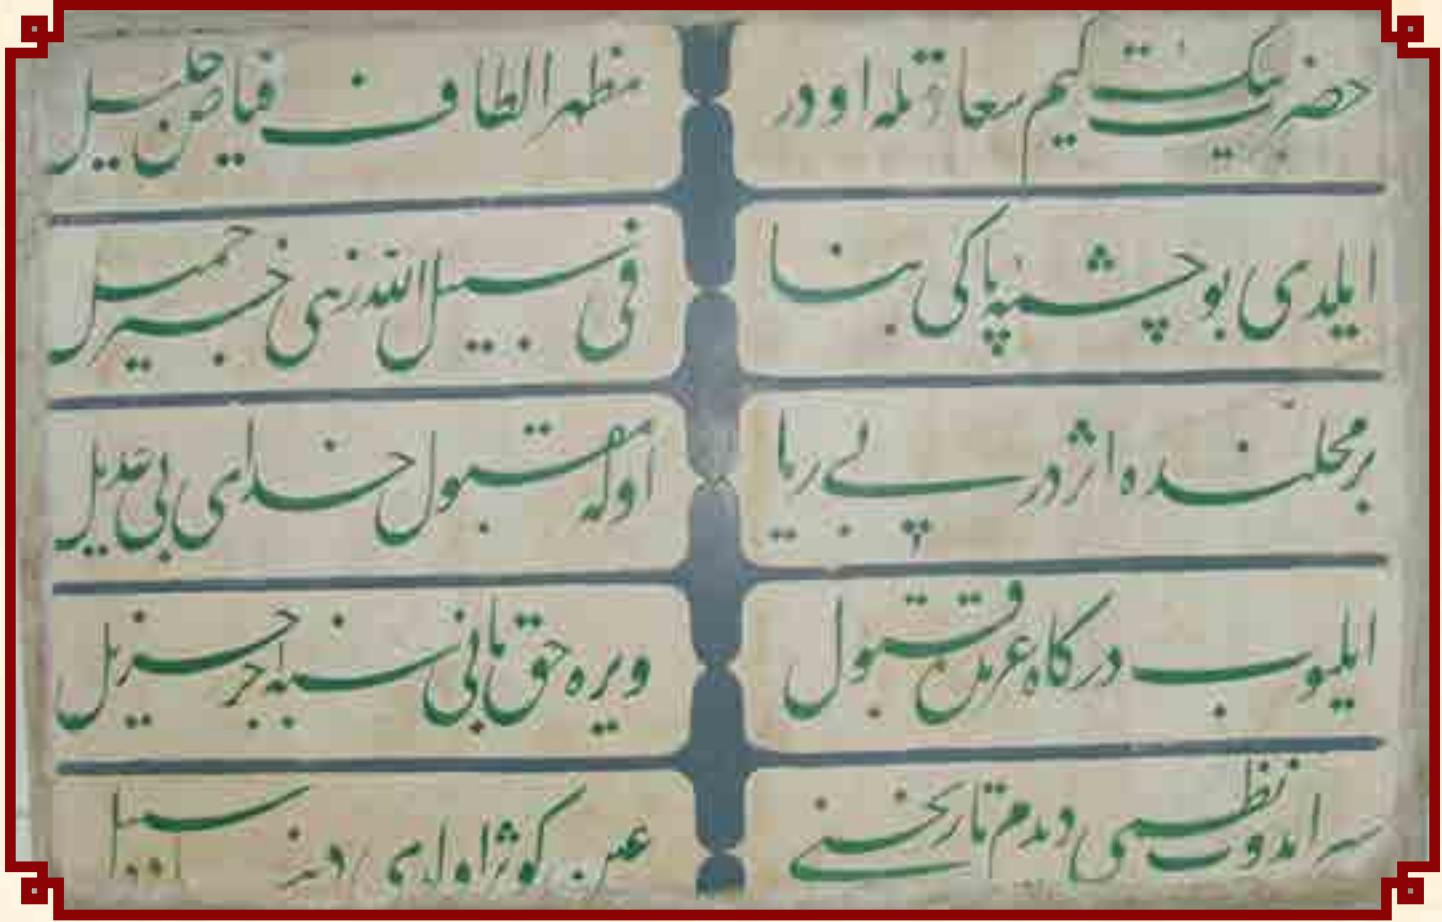 حضرت کیم سعادتله اودر
مظهر الطاف فیاض جلیل
ایلدی بو چشمه پاکی بنا
فی سبیل الله زهی خیر جمیل
بر محلنده اثردر بی ریا
اوله مقبول خدای بی عدیل
ایلیوب درکاه قبول
ویره حق بانی سنه اجر جزیل
نظمی دیدم تاریخنی
عین کوثر سبیل